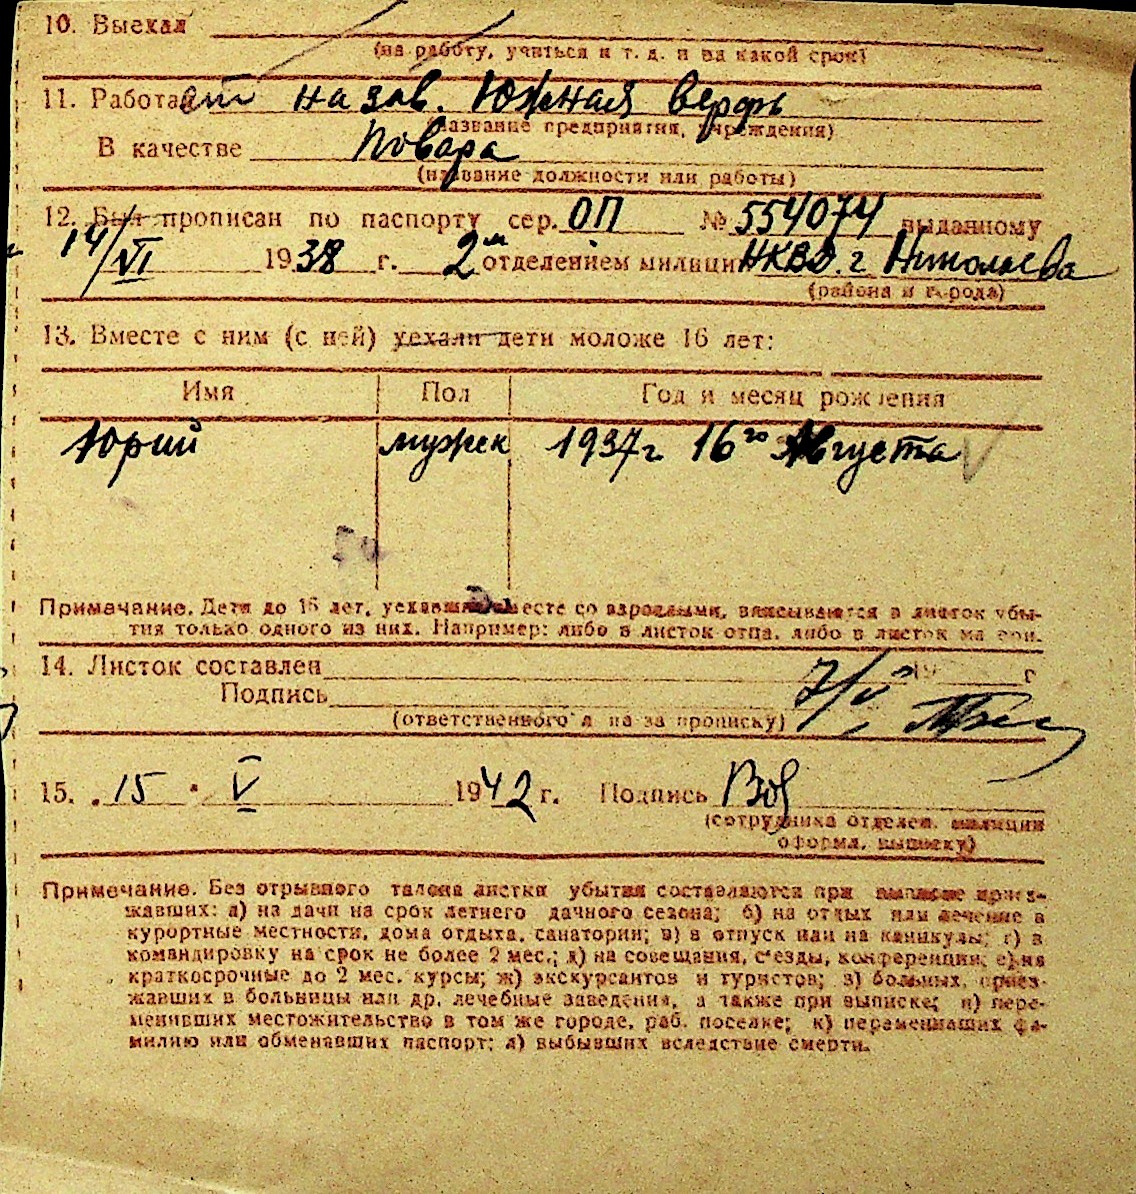 10. Выехал
(на работу, учиться и т. д. и на какой срок)
11. Работает на зав. Южная верфь
(название предприятия, учреждения)
В качестве Повара
(название должности или работы)
12. Был прописан по паспорту сер. ОП № 554074 выданному
14/VI 1938 г. 2м отделением милиции НКВД. г Николаева
(района и города)
13. Вместе с ним (с ней) уехали дети моложе 16 лет:
Имя Пол Год и месяц рождения
Юрий мужск 1937 г. 16го Августа
Примечание. Дети до 16 лет, уехавшие вместе со взрослыми, вписываются в листок убы-
тия только одного из них. Например: либо в листок отца, либо в листок матери.
14. Листок составлен 7/V 19 г
Подпись
(ответственного л на за прописку)
15. 15 " V 1942 г. Подпись
(сотрудника отделен. милиции
оформл. выписку)
Примечание. Без отрывного талона листки убытия составляются при выписке приез-
жавших: а) на дачи на срок летнего дачного сезона; б) на отдых или лечение в
курортные местности, дома отдыха, санатории; в) в отпуск или на каникулы; г) в
командировку на срок не более 2 мес.; д) на совещания, с'езды, конференции; е) на
краткосрочные до 2 мес. курсы; ж) экскурсантов и туристов; з) больных, приез-
жавших в больницы или др. лечебные заведения, а также при выписке; и) пере-
менивших местожительство в том же городе, раб. поселке; к) переменивших фа-
милию или обменявших паспорт; л) выбывших вследствие смерти.